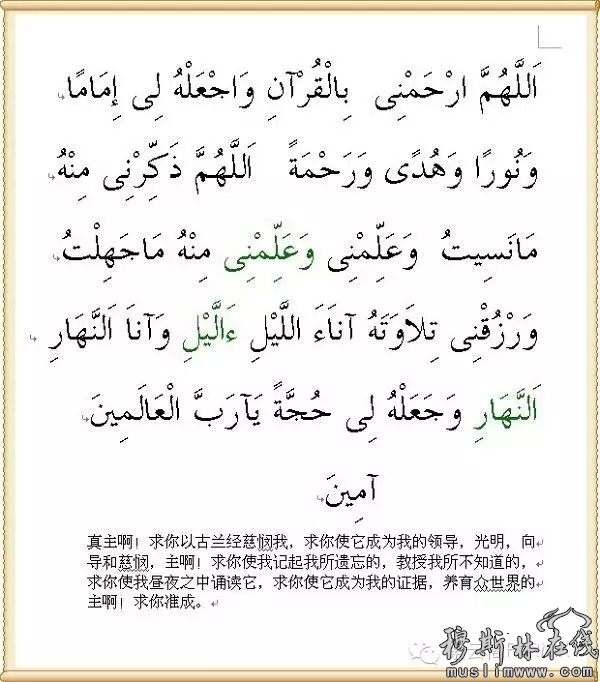 اَللَّهُمَّ ارْحَمْنِى بِالْقُرْآنِ وَاجْعَلْهُ لِى إِمَامًا
وَنُورًا وَهُدًى وَرَحْمَةً اَللَّهُمَّ ذَكِّرْنِى مِنْهُ
مَانَسِيتُ وَعَلِّمْنِى وَعَلِّمْنِى مِنْهُ مَاجَهِلْتُ
وَرْزُقْنِى تِلاَوَتَهُ آنَاءَ اللَّيْلِ ءَالَّيْلِ وَآنَا اَلنَّهَارِ
اَلنَّهَارِ وَجَعَلْهُ لِى حُجَّةً يَآرَبَّ الْعَالَمِينَ
آمِينَ
真主啊！求你以古兰经慈悯我，求你使它成为我的领导，光明，向
导和慈悯，主啊！求你使我记起我所遗忘的，教授我所不知道的，
求你使我昼夜之中诵读它，求你使它成为我的证据，养育众世界的
主啊！求你准成。
穆斯林在线
muslimwww.com